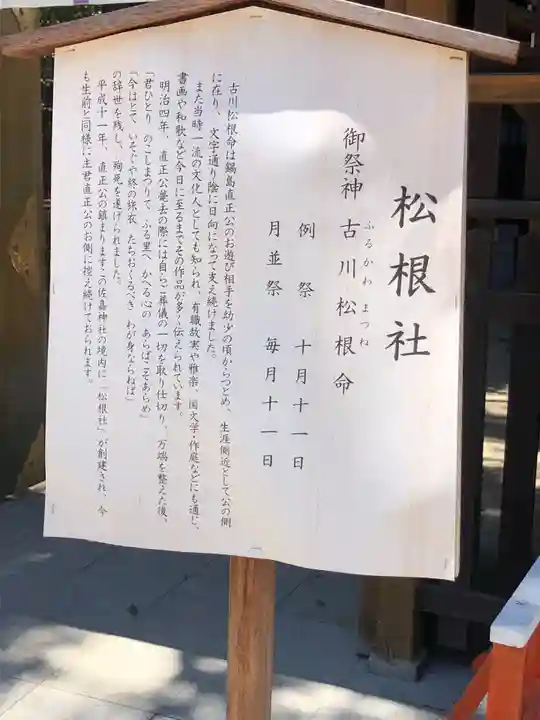 松根社
御祭神 古川松根命
ふるかわ まつね
例祭 十月十一日
月並祭 毎月十一日
古川松根命は鍋島直正公のお遊び相手を幼少の頃からつとめ、生涯側近として公の側
に在り、文字通り陰に日向になって支え続けました。
また当時一流の文化人としても知られ、有職故実や雅楽、国文学・作庭などにも通じ、
書画や和歌など今日に至るまでその作品が多く伝えられています。
明治四年、直正公薨去の際には自らご葬儀の一切を取り仕切り、万端を整えた後、
「君ひとり のこしまつりて ふる里へ かへる心の あらばこそあらめ」
「今はとて いそぐや終の旅衣 たちおくるべき わが身ならねば」
の辞世を残し、殉死を遂げられました。
平成十一年、直正公の鎮まりますこの佐嘉神社の境内に「松根社」が創建され、今
も生前と同様に主君直正公のお側に控え続けておられます。